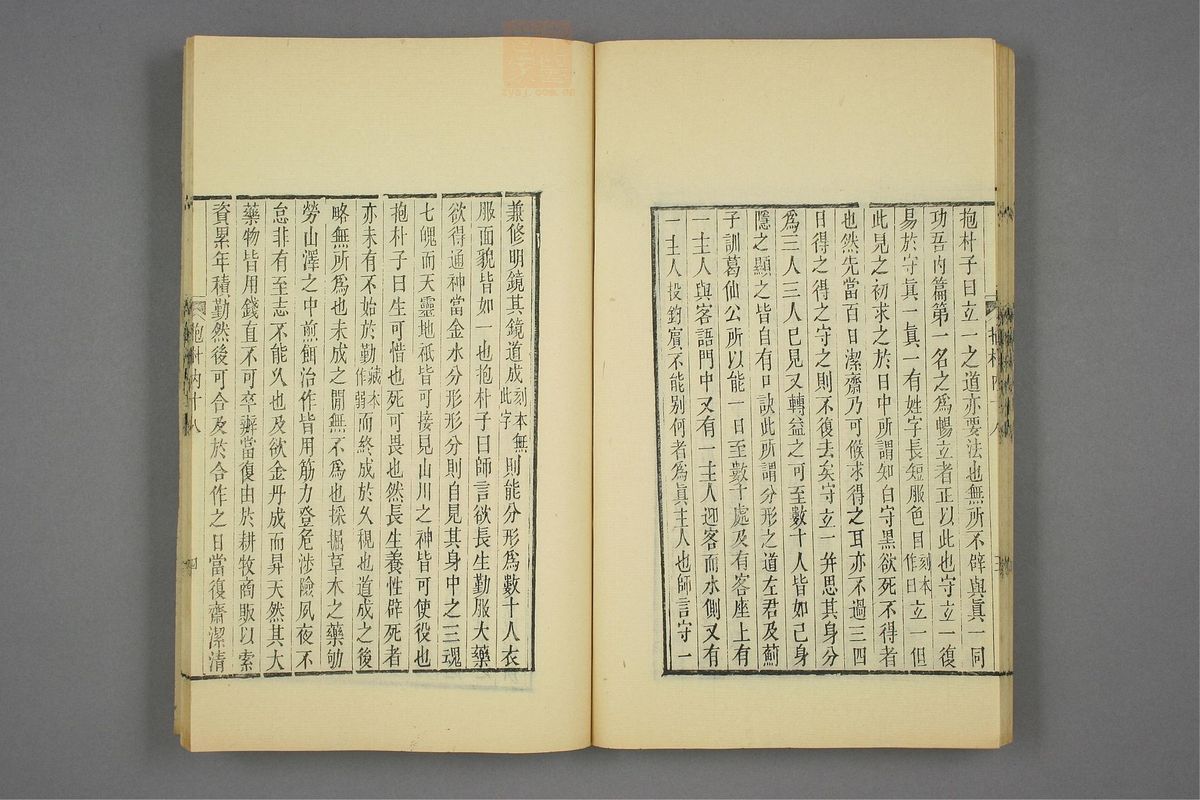 抱朴子曰立一之道亦要法也無所不辟與眞一同
功吾內篇第一名之爲暢立者正以此也守立一復
易於守眞一眞一有姓字長短服色目刻本作曰立一但
此見之初求之於日中所謂知白守黑欲死不得者
也然先當百日潔齋乃可候求得之耳亦不過三四
日得之得之守之則不復去矣守立一幷思其身分
爲三人三人已見又轉益之可至數十人皆如己身
隱之顯之皆自有口訣此所謂分形之道左君及薊
子訓葛仙公所以能一日至數十處及有客座上有
一主人與客語門中又有一主人迎客而水側又有
一主人投釣賓不能別何者爲眞主人也師言守一
兼修明鏡其鏡道成刻本無此字則能分形爲數十人衣
服面貌皆如一也抱朴子曰師言欲長生勤服大藥
欲得通神當金水分形形分則自見其身中之三魂
七魄而天靈地祇皆可接見山川之神皆可使役也
抱朴子曰生可惜也死可畏也然長生養性辟死者
亦未有不始於勤藏本作弱而終成於久視也道成之後
略無所爲也未成之閒無不爲也採掘草木之藥劬
勞山澤之中煎餌治作皆用筋力登危涉險夙夜不
怠非有至志不能久也及欲金丹成而昇天然其大
藥物皆用錢直不可卒辦當復由於耕牧商販以索
資累年積勤然後可合及於合作之日當復齋潔清
抱朴內十八
四